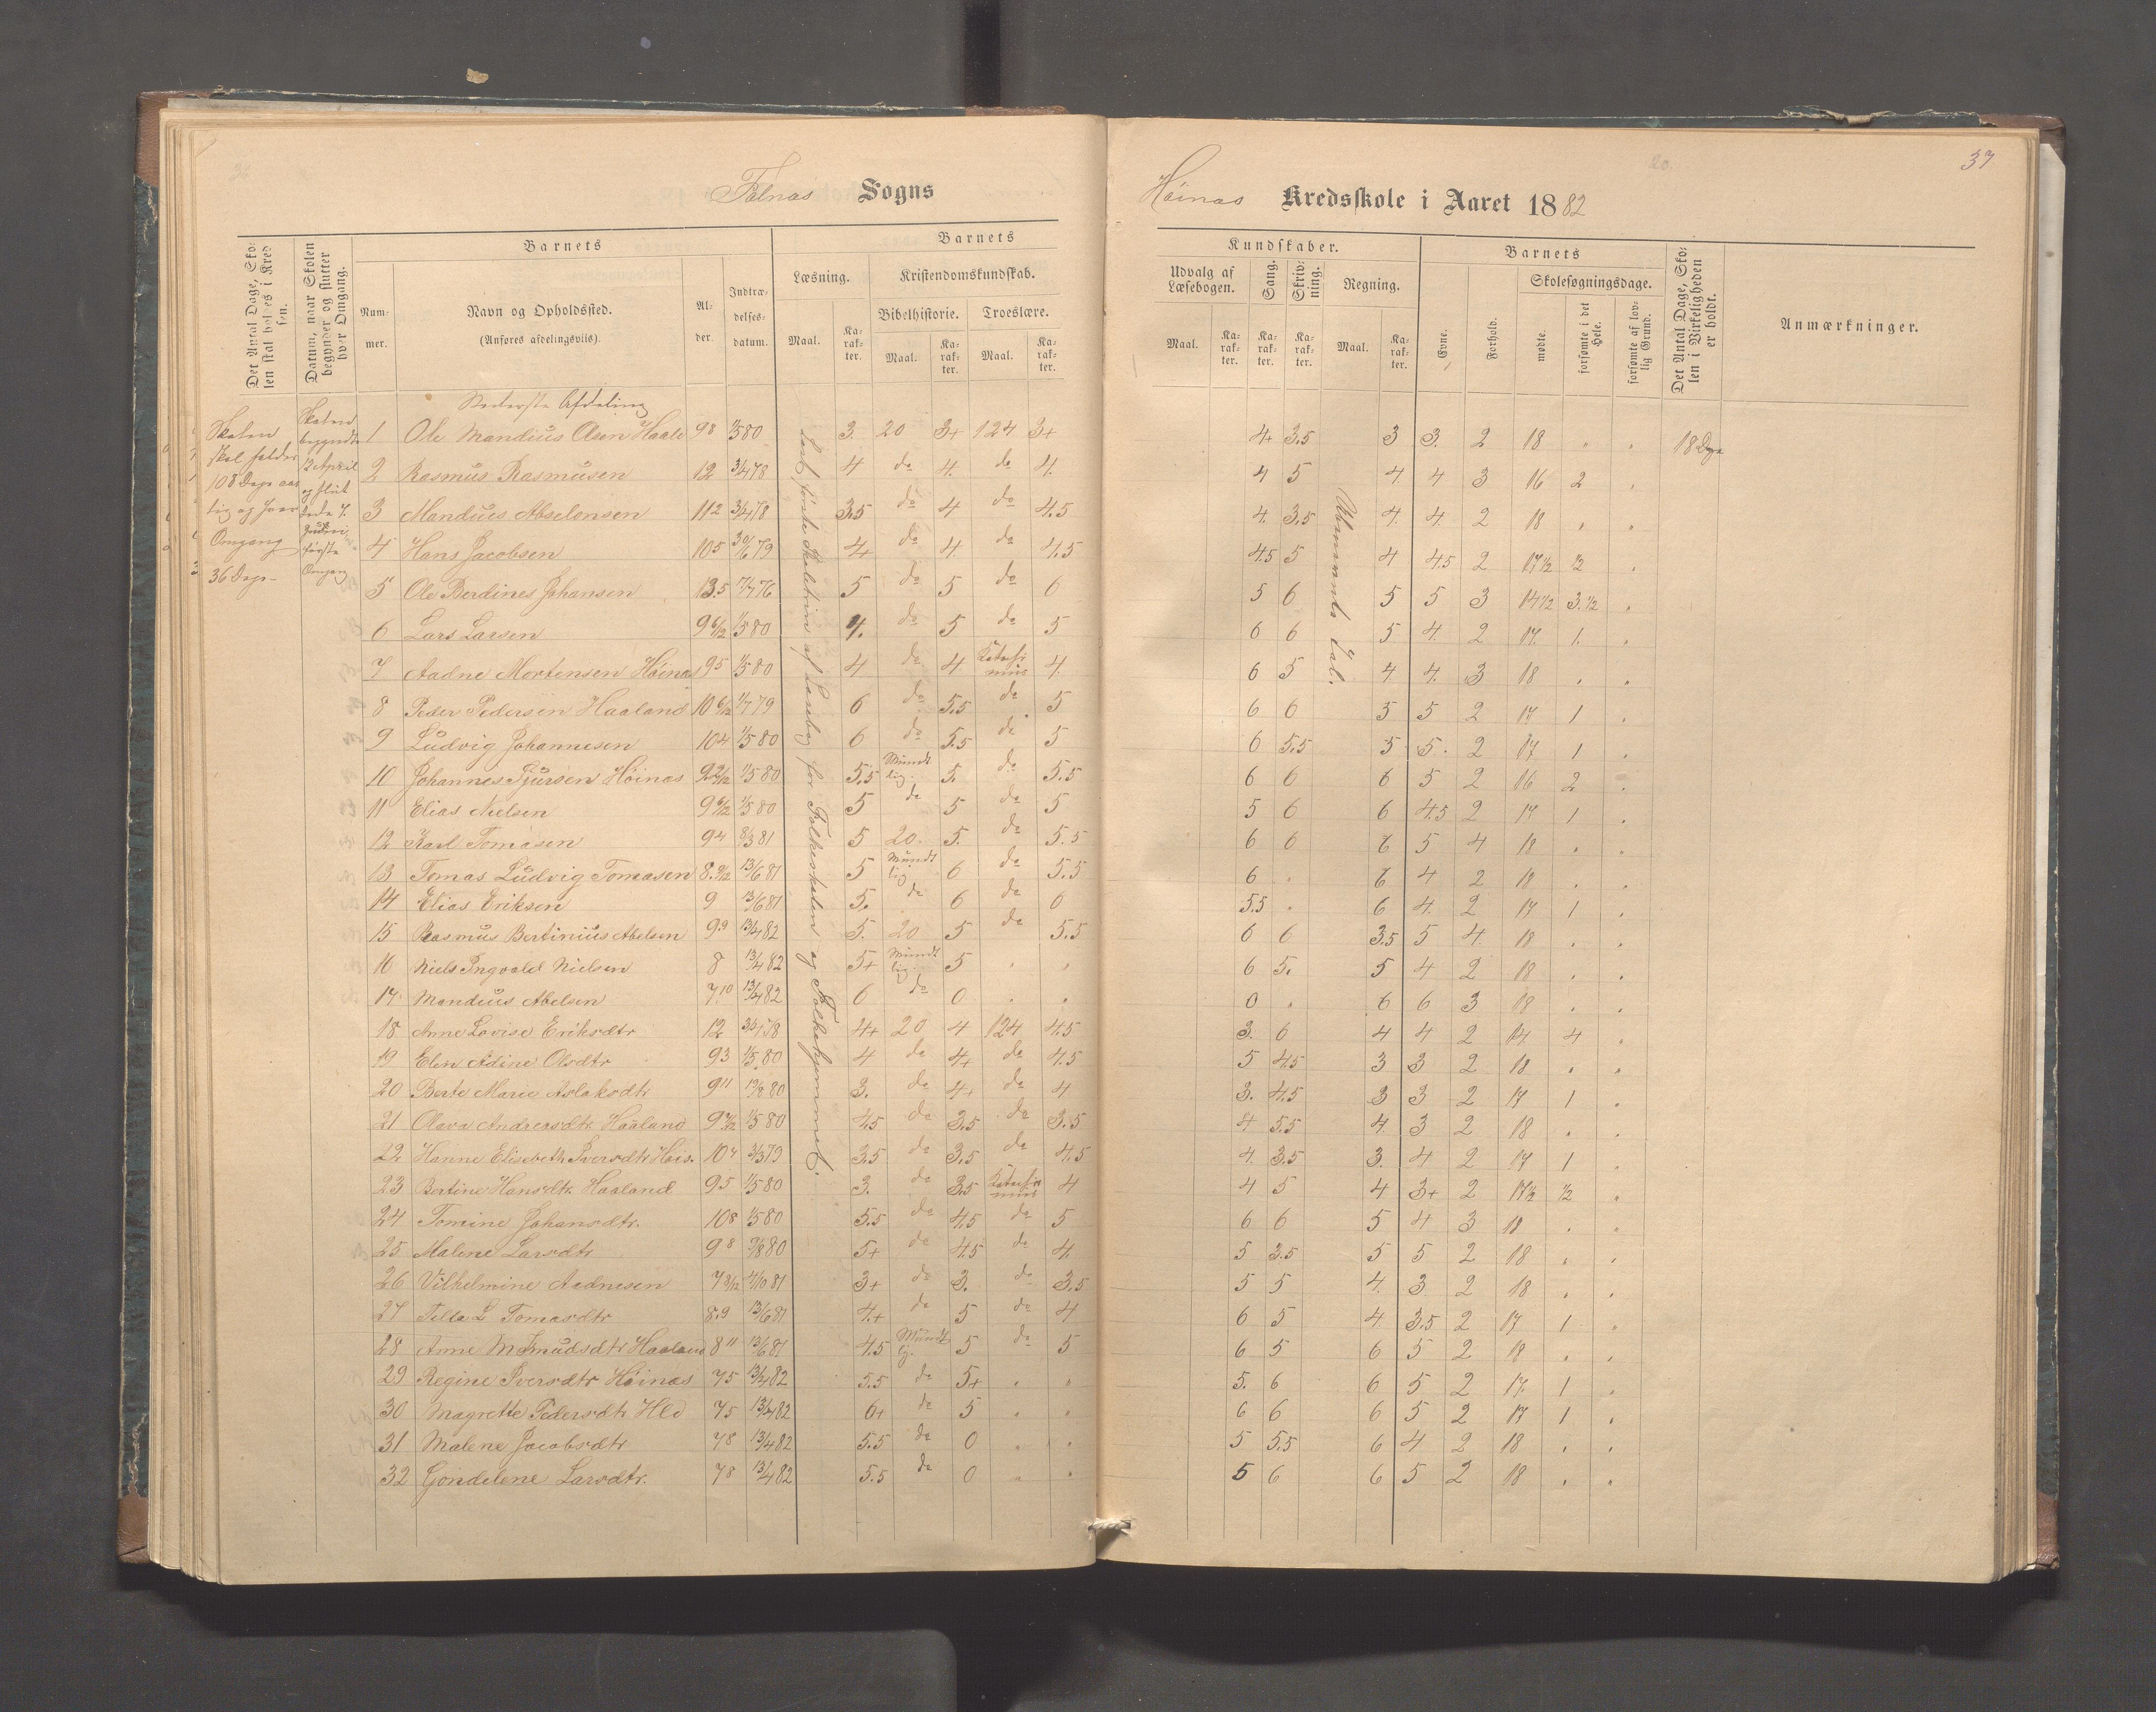 Falnæs Sogns
Høinæs Kredsskole i Aaret 1882
37
Det Antal Dage, Skolen skal holdes i Kredsen.
Datum, naar Skolen begynder og slutter hver Omgang.
Barnets
Nummer.
Navn og Opholdssted.
(Anføres afdelingsviis).
Alder.
Indtrædelsesdatum.
Barnets
Læsning.
Kristendomskundskab.
Maal.
Karakter.
Bibelhistorie.
Troeslære.
Maal.
Karakter.
Maal.
Karakter.
Kundskaber.
Udvalg af Læsebogen.
Sang.
Skrivning.
Regning.
Maal.
Karakter.
Karakter.
Karakter.
Maal.
Karakter.
Barnets
Evne.
Forhold.
Skolesøgningsdage.
mødte.
forsømte i det Hele.
forsømte af lovlig Grund.
Det Antal Dage, Skolen i Virkeligheden er holdt.
Anmærkninger.
Nederste Afdeling
Skolen
skal holdes
108 Dage aar
lig og hver
Omgang
36 Dage
Skolen
begyndte
12 April
og slut
første
Omgang
Læst første Skoletrin af Læsebog for Folkeskolen og Folkehjemmet.
Ubenævnte Tal.
1 Ole Mandius Olsen Haala 98 1/5 80 3. 20 3+ 124 3+ 4+ 3.5 3 3. 2 18 " " 18 Dage
2 Rasmus Rasmusen 12 3/4 78 4 do 4. do 4. 4 5 4 4 3 16 2 "
3 Mandius Abselonsen 112 3/4 78 3.5 do 4 do 4.5 4. 3.5 4. 4. 2 18 " "
4 Hans Jacobsen 105 30/6 79 4+ do 4. do 4.5 4.5 5 4 4.5 2 17 1/2 1/2 "
5 Ole Berdines Johansen 13.5 7/4 76 5 do 5 do 6 5 6 5 5 3 14 1/2 3.1/2 "
6 Lars Larsen 9 6/12 1/5 80 4. do 5 do 5 6 6 5 4. 2 17. 1. "
7 Aadne Mortensen Høinæs 95 1/5 80 4 do 4 Katekis mus 4. 6 5 4 4. 3 18 " "
8 Peder Pedersen Haaland 10 6/12 1/7 79 6 do 5.5 do 5 6 6 5 5 2 17 1 "
9 Ludvig Johannesen 104 1/5 80 6 do 5.5 do 5 6 5.5 5 5. 2 17 1 "
10 Johannes Sjursen Høinæs 9 2/12 1/5 80 5.5 Mundt lig. 5. do 5.5 6 6 6 5 2 16 2 "
11 Elias Nielsen 9 6/12 1/5 80 5 do 5 do 5 5 6 6 4.5 2 17 1 "
12 Karl Tomasen 94 8/3 81 5 20. 5. do 5.5 6 6 6 5 4 18 " "
13 Tomas Ludvig Tomasen 8.9/12 13/6 81 5 Mundt lig 6 do 5.5 6 " 6 4 2 18 " "
14 Elias Eriksen 9 13/6 81 5. do 6 do 6 5.5 " 6 4. 2 17 1 "
15 Rasmus Bertinius Abelsen 99 13/4 82 5. 20 5 do 5.5 6 6 3.5 5 4. 18 " "
16 Niels Ingvald Nielsen 8 13/4 82 5+ Mundt lig. 5 " " 6 5. 5 4 2 18 " "
17 Mandius Abelsen 7 10 13/4 82 6 do 0 " " 0 " 6 6 3 18 " "
18 Anne Lovise Eriksdtr 12 3/4 78 4+ 20 4 124 4.5 3. 6 4 4 2 14 4 "
19 Elen Adine Olsdtr 93 1/5 80 4 do 4+ do 4.5 5 4.5 3 3 2 18 " "
20 Berte Marie Aslaksdtr 9 11 19/8 80 3. do 4+ do 4 3. 4.5 3 3 2 17 1 "
21 Olava Andreasdtr. Haaland 9 7/12 1/5 80 4.5 do 3.5 do 3.5 4 5.5 4. 3 2 18 " "
22 Hanne Elisebeth Iversdtr Høis. 104 3/3 79 3.5 do 3.5 do 4.5 4. 3.5 3. 4 2 17 1 "
23 Bertine Hansdtr. Haaland 95 1/5 80 3. do 3.5 Katekis mus 4 4 5 4 3+ 2 17 1/2 1/2 "
24 Tomine Johansdtr. 108 1/5 80 5.5 do 4.5 do 5 6 6 5 4 3 18 " "
25 Malene Larsdtr 98 9/8 80 5+ do 4.5 do 4. 5 3.5 5 5 2 18 " "
26 Vilhelmine Aadnesen 7 8/12 4/10 81 3+ do 3. do 3.5 5 5 4. 3 2 18 " "
27 Tilla L Tomasdtr 8.9 13/6 81 4.+ do 5 do 4 6 5 4 3.5 2 17 1 "
28 Anne M Knudsdtr Haaland 8 11 13/6 81 4.5 Mundt lg. 5 do 5 6 5 6 5 2 18 " "
29 Regine Iversdtr Høinæs 75 13/4 82 5.5 do 5+ " " 5. 6 6 5 2 17. 1 "
30 Magrette Pedersdtr Hld 75 13/4 82 6+ do 5 " " 6 6 6 5 2 17 1 "
31 Malene Jacobsdtr 78 13/4 82 5.5 do 0 " " 5 5.5 6 4 2 18 " "
32 Gondelene Larsdtr. 78 13/4 82 5.5 do 0 " " 5 6 6 5 2 18 " "